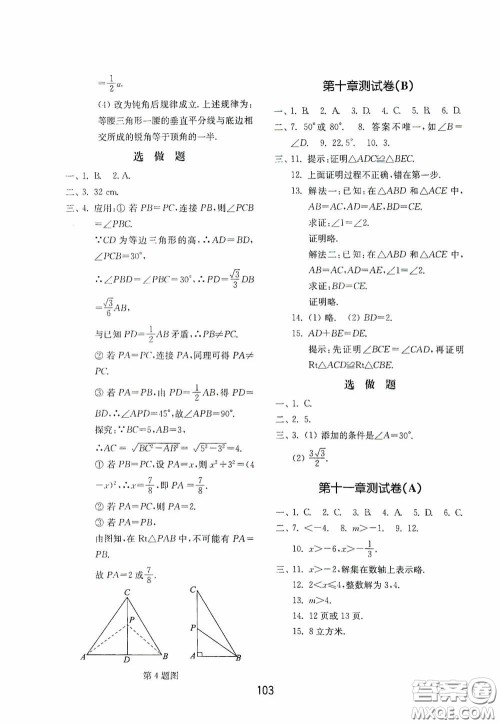 =1/2 a.
(4) 改为钝角后规律成立. 上述规律为:
等腰三角形一腰的垂直平分线与底边相
交所成的锐角等于顶角的一半.
选 做 题
一、1. B. 2. A.
二、3. 32 cm.
三、4. 应用:① 若 PB=PC,连接 PB,则∠PCB
=∠PBC.
∵CD 为等边三角形的高,∴AD=BD,
∠PCB=30°,
∴∠PBD=∠PBC=30°,∴PD=√3/3 DB
=√3/6 AB,
与已知 PD=1/2 AB 矛盾,∴PB≠PC.
② 若 PA=PC,连接 PA,同理可得 PA≠
PC.
③ 若 PA=PB,由 PD=1/2 AB,得 PD=
BD,∴∠APD=45°,故∠APB=90°.
探究:∵BC=5,AB=3,
∴AC=√(BC²−AB²)=√(5²−3²)=4.
① 若 PB=PC,设 PA=x,则 x²+3²=(4
-x)²,∴x=7/8,即 PA=7/8.
② 若 PA=PC,则 PA=2.
③ 若 PA=PB,
由图知,在 Rt△PAB 中,不可能有 PA=
PB.
故 PA=2 或 7/8.
C C
P P
A D B A B
第 4 题图
第十章测试卷(B)
一、1. B. 2. A. 3. D. 4. C. 5. B. 6. C.
二、7. 50°或 80°. 8. 答案不唯一,如∠B=
∠D. 9. 22.5°. 10. 3.
三、11. 提示:证明△ADC≌△BEC.
12. 上面证明过程不正确,错在第一步.
13. 解法一:已知:在△ABD 和△ACE 中,
AB=AC,AD=AE,BD=CE.
求证:∠1=∠2.
证明略.
解法二:已知:在△ABD 和△ACE 中,
AB=AC,AD=AE,∠1=∠2.
求证:BD=CE.
证明略.
14. (1) 略. (2) BD=2.
15. AD+BE=DE.
提示:先证明∠BCE=∠CAD,再证明
Rt△ACD≌Rt△CBE.
选 做 题
一、1. C.
二、2. 5.
三、3. (1) 添加的条件是∠A=30°.
(2) 3√3/2.
第十一章测试卷(A)
一、1. C. 2. C. 3. C. 4. D. 5. A. 6. C.
二、7. <-4. 8. m>-1. 9. 12.
10. x>-6,x>-1/3.
三、11. x>-2. 解集在数轴上表示略.
12. 2<x≤4,整数解为 3,4.
13. m>4.
14. 12 页或 13 页.
15. 8 立方米.
103